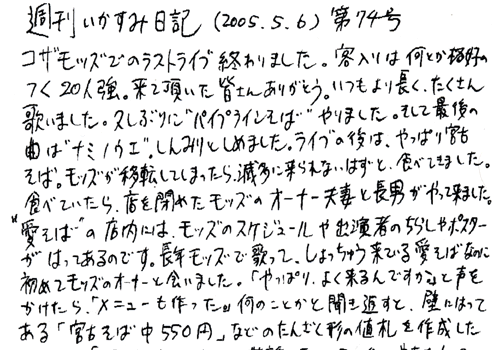 週刊いかすみ日記 (2005.5.6) 第74号
コザモッズでのラストライブ終わりました。客入りは何とか格好の
つく20人強。来て頂いた皆さんありがとう。いつもより長く、たくさん
歌いました。久しぶりに"パイプラインそば"やりました。そして最後の
曲は"ナミノウエ"。しんみりとしめました。ライブの後は、やっぱり宮古
そば。モッズが移転してしまったら、滅多に来られないはずと、食べてきました。
食べていたら、店を閉めたモッズのオーナー夫妻と長男がやって来ました。
"愛そば"の店内には、モッズのスケジュールや出演者のちらしやポスター
がはってあるのです。長年モッズで歌って、しょっちゅう来てる愛そばなのに
初めてモッズのオーナーと会いました。「やっぱり、よく来るんですか」と声を
かけたら、「メニューも作った。」何のことかと聞き返すと、壁にはって
ある「宮古そば中550円」などのたんざく形の値札を作成した